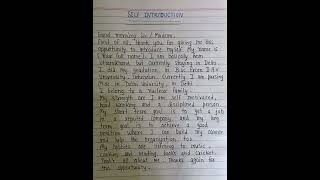 SELF INTRODUCTION
Good morning Sir / Madam.
First of all, thank you for giving me this
opportunity to introduce myself. My name is
( Your full name ). I am basically from
Uttarakhand, but currently staying in Delhi.
I did my graduation in B.sc from D.B.S
University, Dehradun. Currently I am pursuing
Msc. in Delhi University, in Delhi
I belong to a Nuclear family.
My strength are I am self motivated,
hard working and a disciplined person.
My short term goal is to get a job
in a reputed company and my long
term goal is to achieve a good
position where I can build my career
and help the organisation, too.
My hobbies are listening to music,
cooking and reading books and cricket.
That's all about me. Thanks again for
this opportunity.